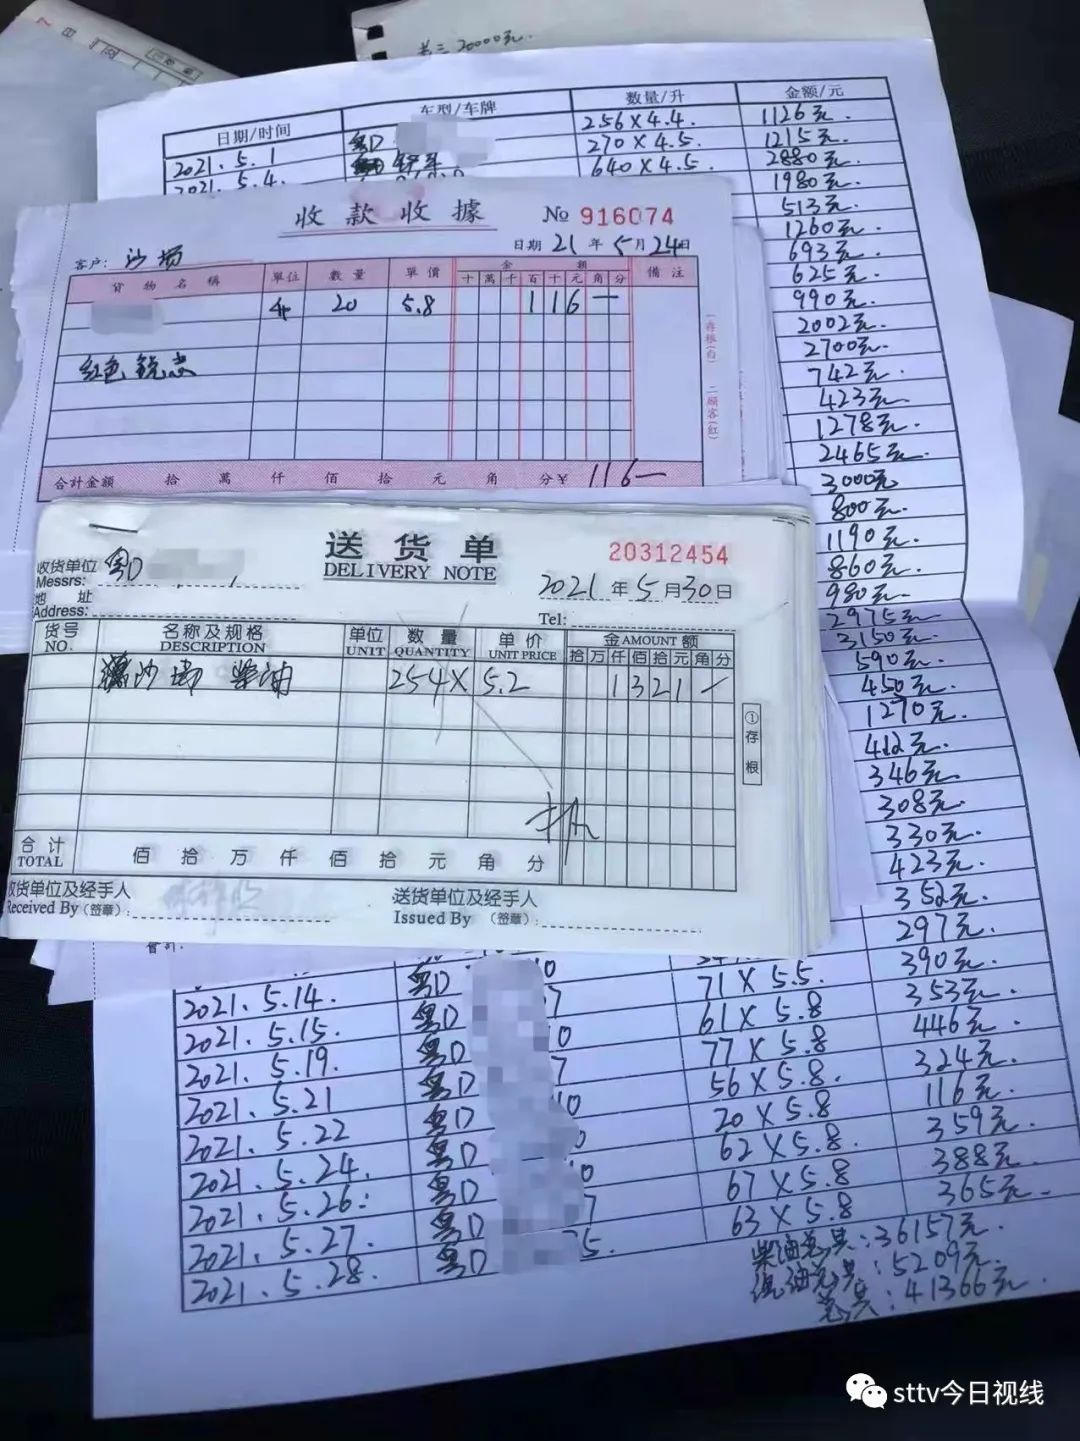 老三 20000元.
日期/时间 车型/车牌 数量/升 金额/元
2021.5.1 粤D 256×4.4. 1126元.
2021.5.4. 270×4.5. 1215元.
640×4.5. 2880元.
1980元.
513元.
1260元.
693元.
625元.
990元.
2002元.
2700元.
742元.
423元.
1278元.
2465元.
3000元
800元.
1190元.
860元.
980元.
2975元.
3150元.
590元.
450元.
1270元.
412元.
346元.
308元.
330元.
423元.
352元.
297元.
390元.
353元.
446元.
324元.
116元.
359元.
388元.
365元.
收款收據 № 916074
客户: 沙场 日期 21年5月24日
貨物名稱 單位 數量 單價 金額 備注
十萬千百十元角分
升 20 5.8 116—
红色 锐志
合計金額 拾 萬 仟 佰 拾 元 角 分¥ 116—
一存根(白) 二顧客(紅)
送货单 20312454
DELIVERY NOTE
收货单位 粤D 2021年5月30日
Messrs:
地址
Address: Tel:
货号 名称及规格 单位 数量 单价 金AMOUNT额
NO. DESCRIPTION UNIT QUANTITY UNIT PRICE 拾万仟佰拾元角分
沙场 柴油 254× 5.2 1321—
①存根
合计
TOTAL 佰 拾 万 仟 佰 拾 元 角 分
收货单位及经手人 送货单位及经手人
Received By (签章): Issued By (签章):
2021.5.14. 粤D 71×5.5.
2021.5.15. 粤D 61×5.8
2021.5.19. 粤D 77×5.8
2021.5.21 粤D 56×5.8.
2021.5.22 粤D 20×5.8
2021.5.24. 粤D 62×5.8.
2021.5.26. 粤D 67×5.8
2021.5.27. 粤D 63×5.8
2021.5.28. 粤D
柴油总共:36157元.
汽油总共:5209元.
总共:41366元.
sttv今日视线